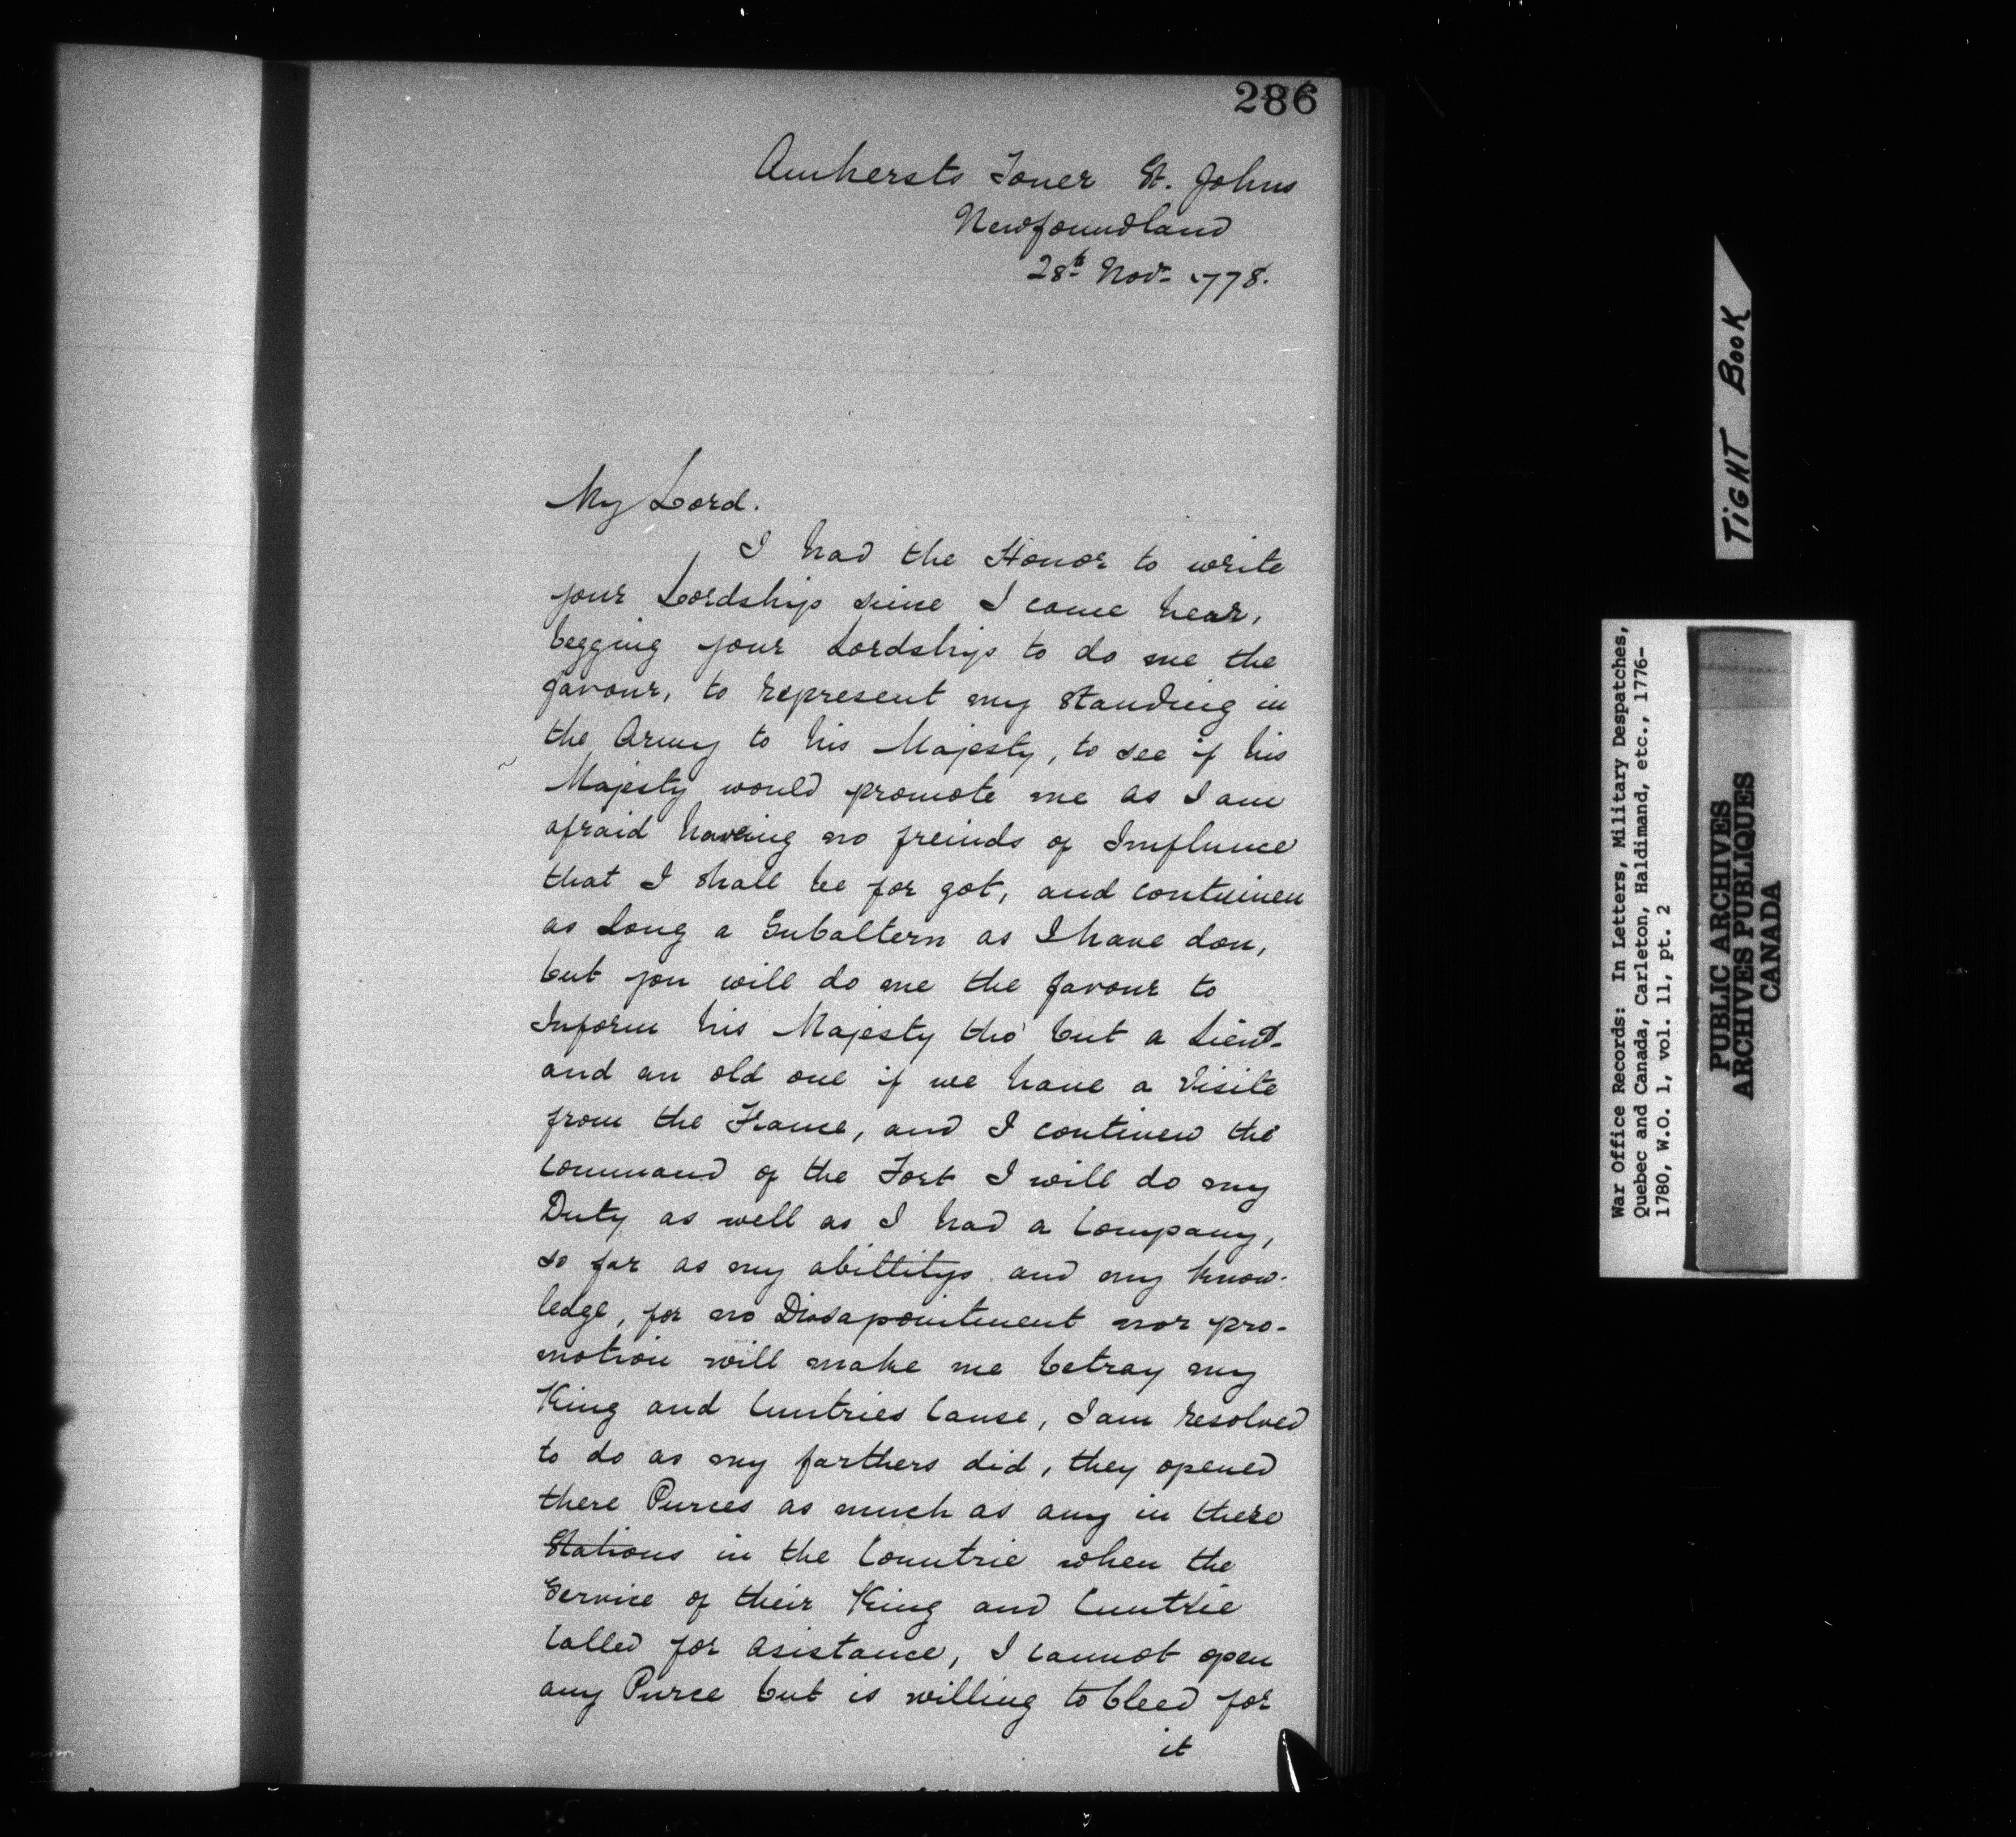 286
Amhersts Tower St. Johns
Newfoundland
28th Novr 1778.
My Lord.
I had the Honor to write
your Lordship since I came hear,
begging your Lordship to do me the
favour, to represent my standing in
the Army to his Majesty, to see if his
Majesty would promote me as I am
afraid haveing no freinds of Influnce
that I shall be for got, and continuen
as long a Subaltern as I have don,
but you will do me the favour to
Inform his Majesty tho' but a Lieut.
and an old one if we have a Visite
from the France, and I continew the
Command of the Fort I will do my
Duty as well as I had a Company,
so far as my abillitys and my know-
ledge, for no Disapointment nor pro-
motion will make me betray my
King and Cuntries Cause, I am resolved
to do as my farthers did, they opened
there Purces as much as any in there
Stations in the Countrie when the
Service of their King and Cuntrie
Called for asistance, I cannot open
any Purce but is willing to bleed for
it
TIGHT BOOK
War Office Records: In Letters, Military Despatches,
Quebec and Canada, Carleton, Haldimand, etc., 1776-
1780, W.O. 1, vol. 11, pt. 2
PUBLIC ARCHIVES
ARCHIVES PUBLIQUES
CANADA